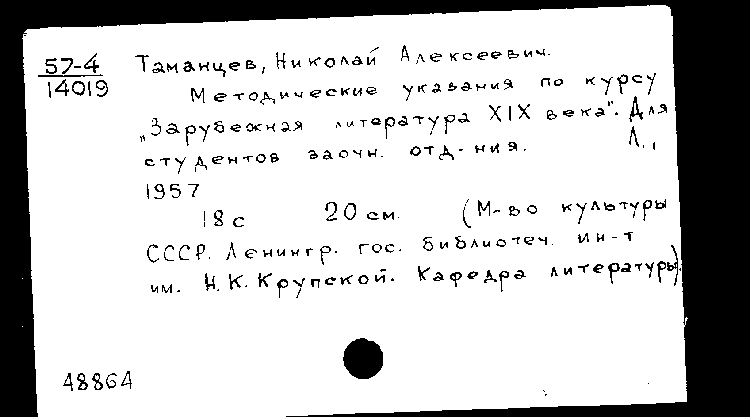 57-4
14019
Таманцев, Николай Алексеевич.
Методические указания по курсу
„Зарубежная литература XIX века". Для
студентов заочн. отд-ния. Л.,
1957
18 с 20 см. (М-во культуры
СССР. Ленингр. гос. библиотеч. ин-т
им. Н.К. Крупской. Кафедра литературы).
48864